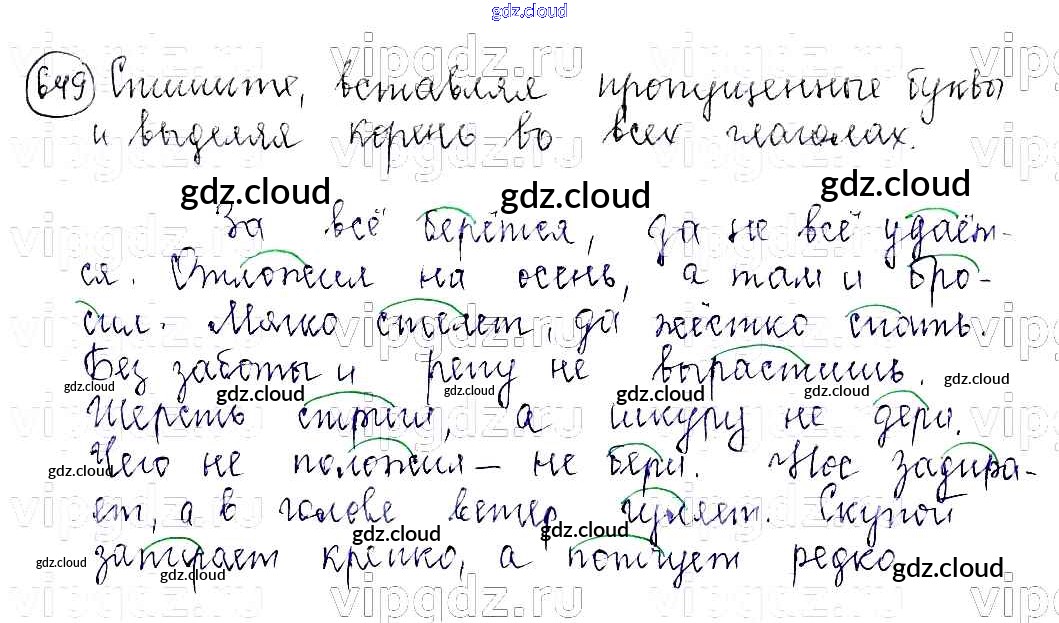 gdz.cloud
649 Спишите, вставляя пропущенные буквы
и выделяя корень во всех глаголах.
gdz.cloud gdz.cloud gdz.cloud
За всё берётся, да не всё удаёт-
ся. Отложил на осень, а там и бро-
сил. Мягко стелет, да жёстко спать.
Без заботы и репу не вырастишь.
gdz.cloud gdz.cloud gdz.cloud gdz.cloud
Шерсть стриги, а шкуру не дери.
Чего не положил – не бери. Нос задира-
gdz.cloud gdz.cloud gdz.cloud
ет, а в голове ветер гуляет. Скупой
gdz.cloud gdz.cloud
запирает крепко, а потчует редко.
gdz.cloud gdz.cloud gdz.cloud
vipgdz.ru vipgdz.ru vipgdz.ru